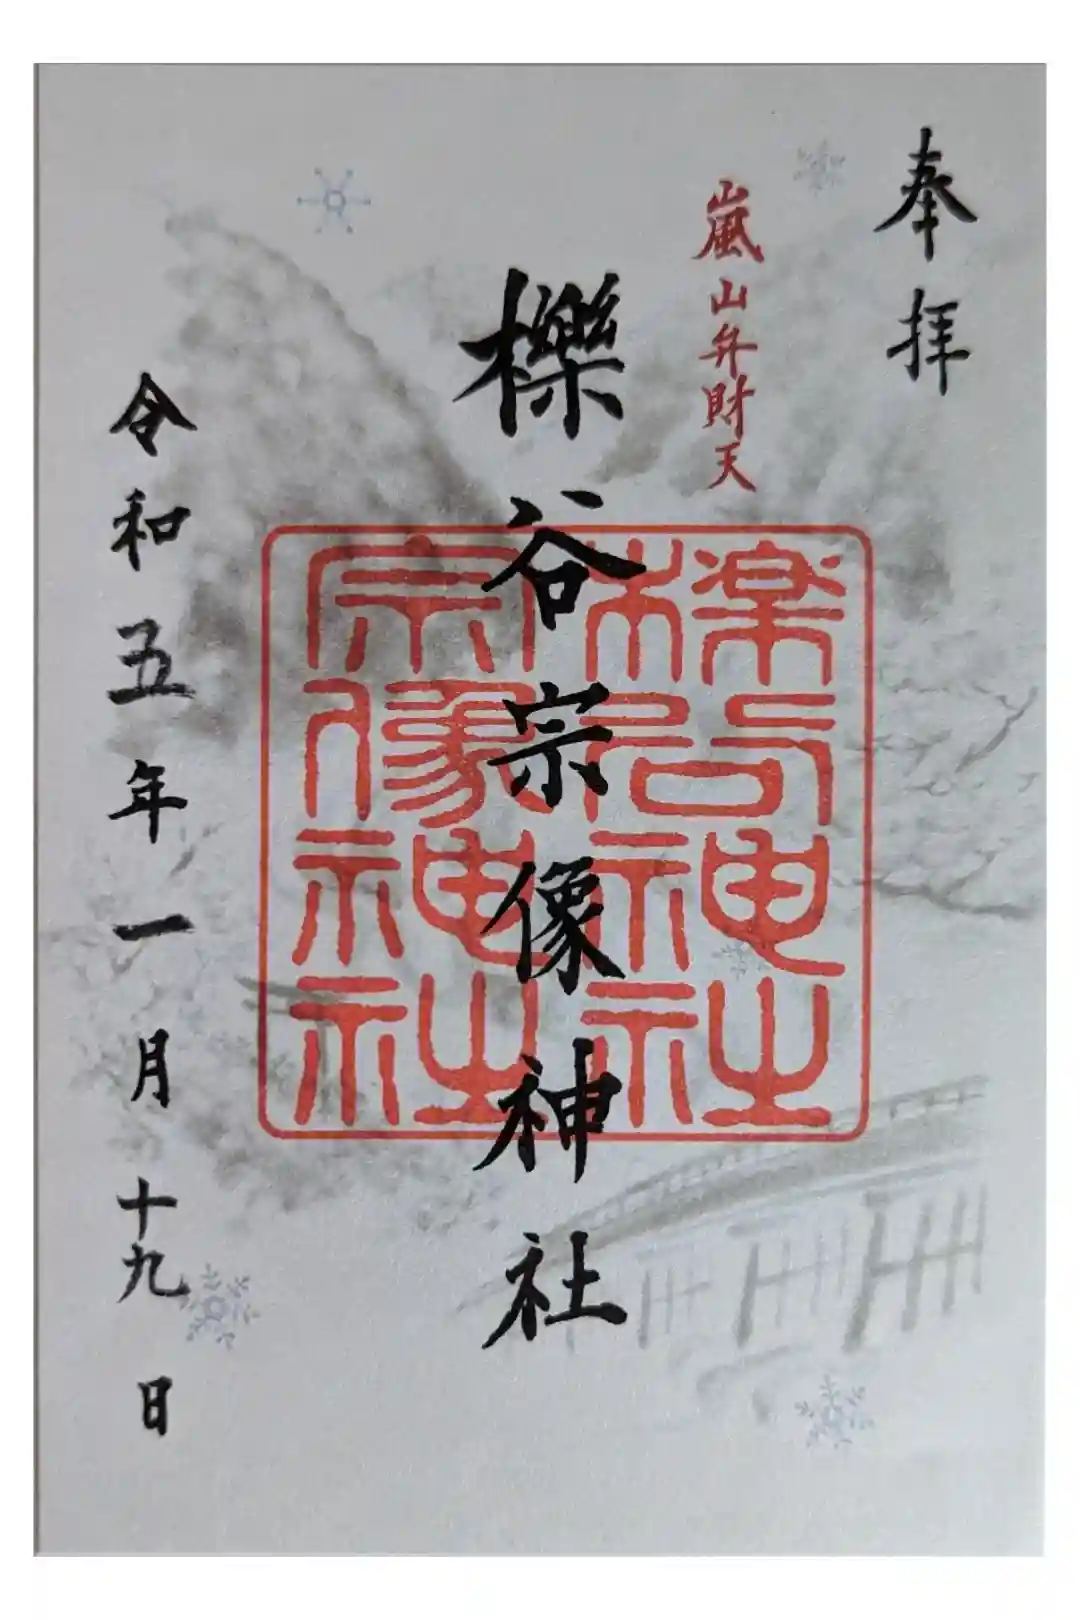 奉拝
嵐山弁財天
櫟谷宗像神社
櫟谷神社
宗像神社
令和五年一月十九日